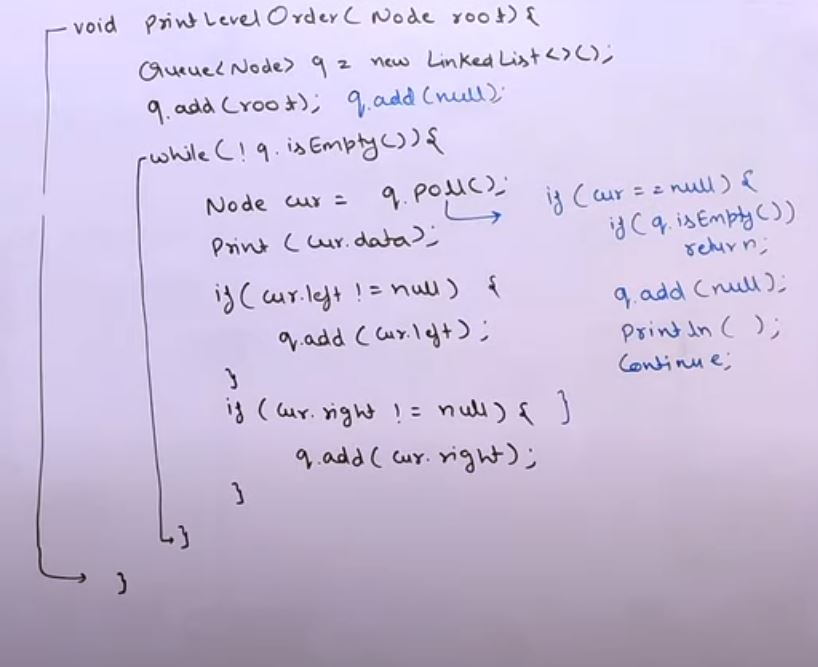 void PrintLevelOrder( Node root) {
Queue<Node> q = new LinkedList<>();
q.add(root); q.add(null);
while(! q.isEmpty()) {
Node cur = q.poll();
Print (cur.data);
if (cur.left != null) {
q.add (cur.left);
}
if (cur.right != null) {
q.add( cur.right);
}
}
}
if (cur == null) {
if( q.isEmpty())
return;
q.add (null);
Println ( );
Continue;
}